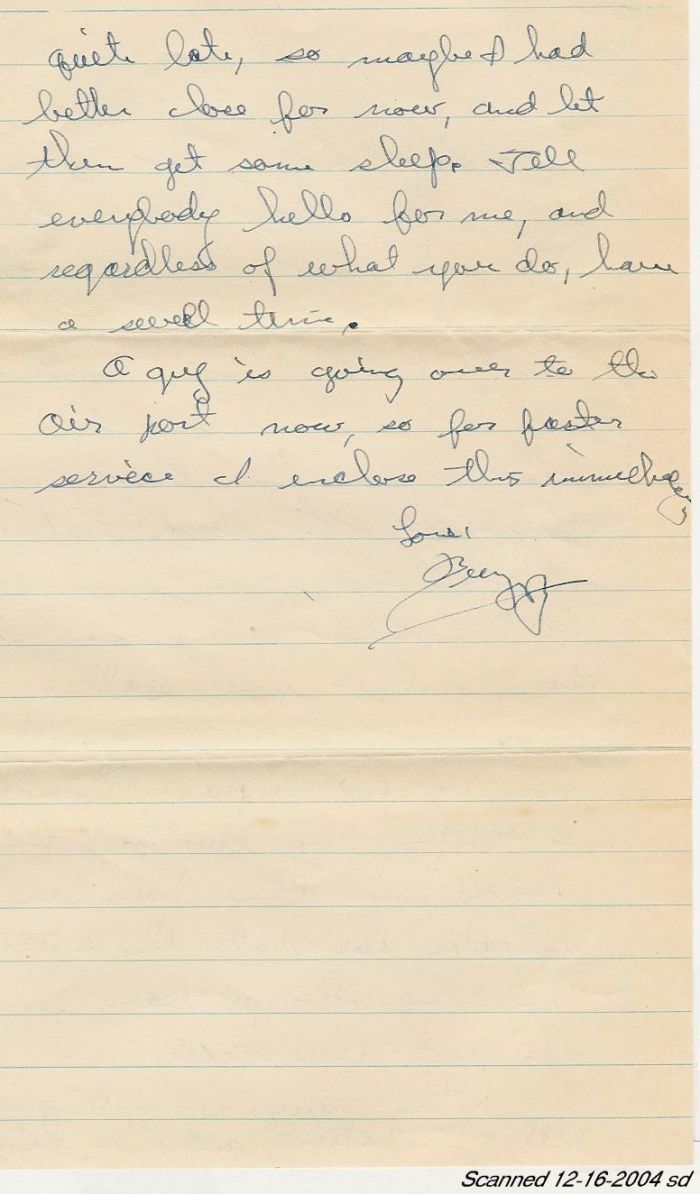 quite late, so maybe I had
better close for now, and let
them get some sleep. Tell
everybody hello for me, and
regardless of what you do, have
a swell time.
A guy is going over to the
air port now, so for faster
service I enclose this immediately
Love,
Scanned 12-16-2004 sd